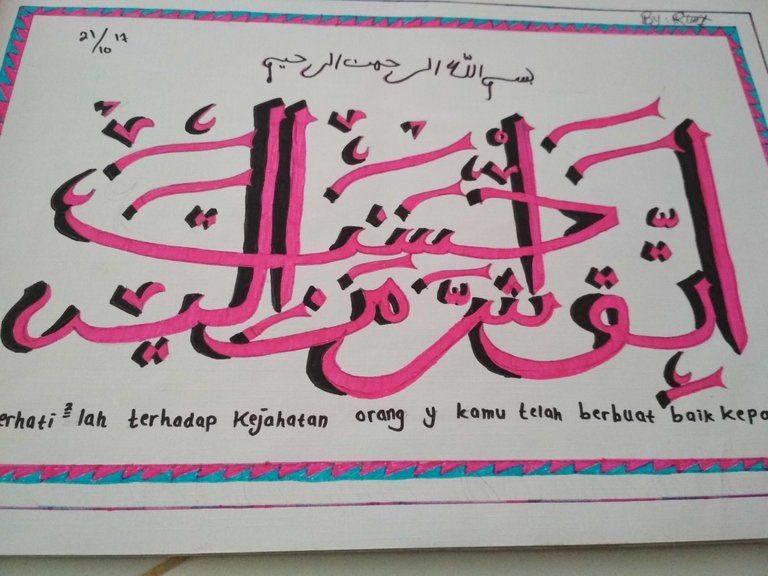 By: 
21/10 17
بسم الله الرحمن الرحيم
إِتَّقِ شَرَّ مَنْ أَحْسَنْتَ إِلَيْهِ
erhati ²lah terhadap Kejahatan orang y kamu telah berbuat baik kepa